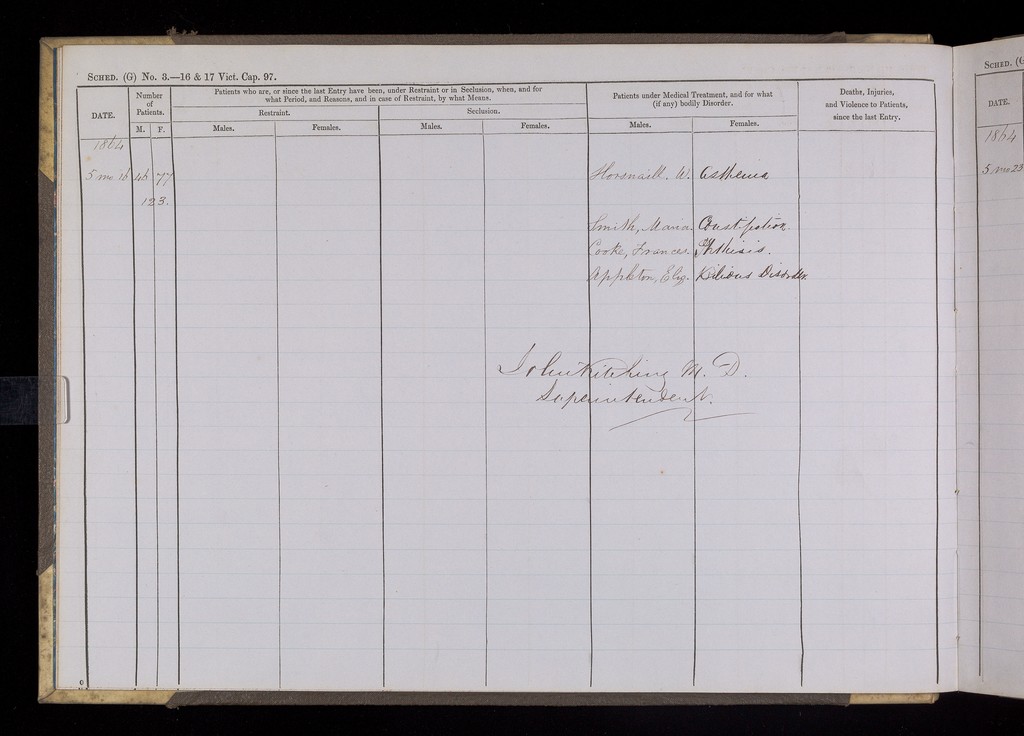 SCHED. (G) No. 3.—16 & 17 Vict. Cap. 97.
DATE.
Number of Patients.
M. F.
Patients who are, or since the last Entry have been, under Restraint or in Seclusion, when, and for
what Period, and Reasons, and in case of Restraint, by what Means.
Restraint.
Seclusion.
Males. Females. Males. Females.
Patients under Medical Treatment, and for what
(if any) bodily Disorder.
Males. Females.
Deaths, Injuries,
and Violence to Patients,
since the last Entry.
1864
5 mo 16 46 77 Horsnaill. W. Asthenia
123.
Smith, Maria. Constipation.
Cooke, Frances. Phthisis.
Appleton, Eliz. Bilious Disorder.
John Kitching M. D.
Superintendent.
SCHED. (G
DATE.
1864
5 mo 23